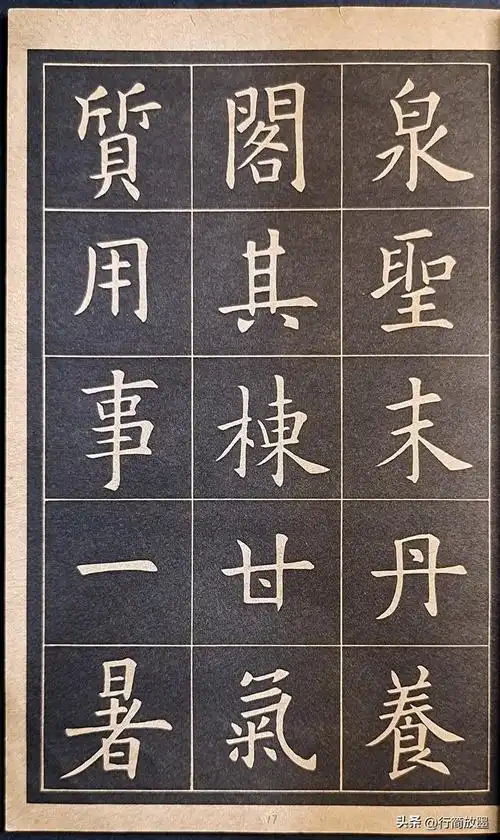 泉聖末丹養
閣其棟甘氣
質用事一暑
17
头条 @行简放墨